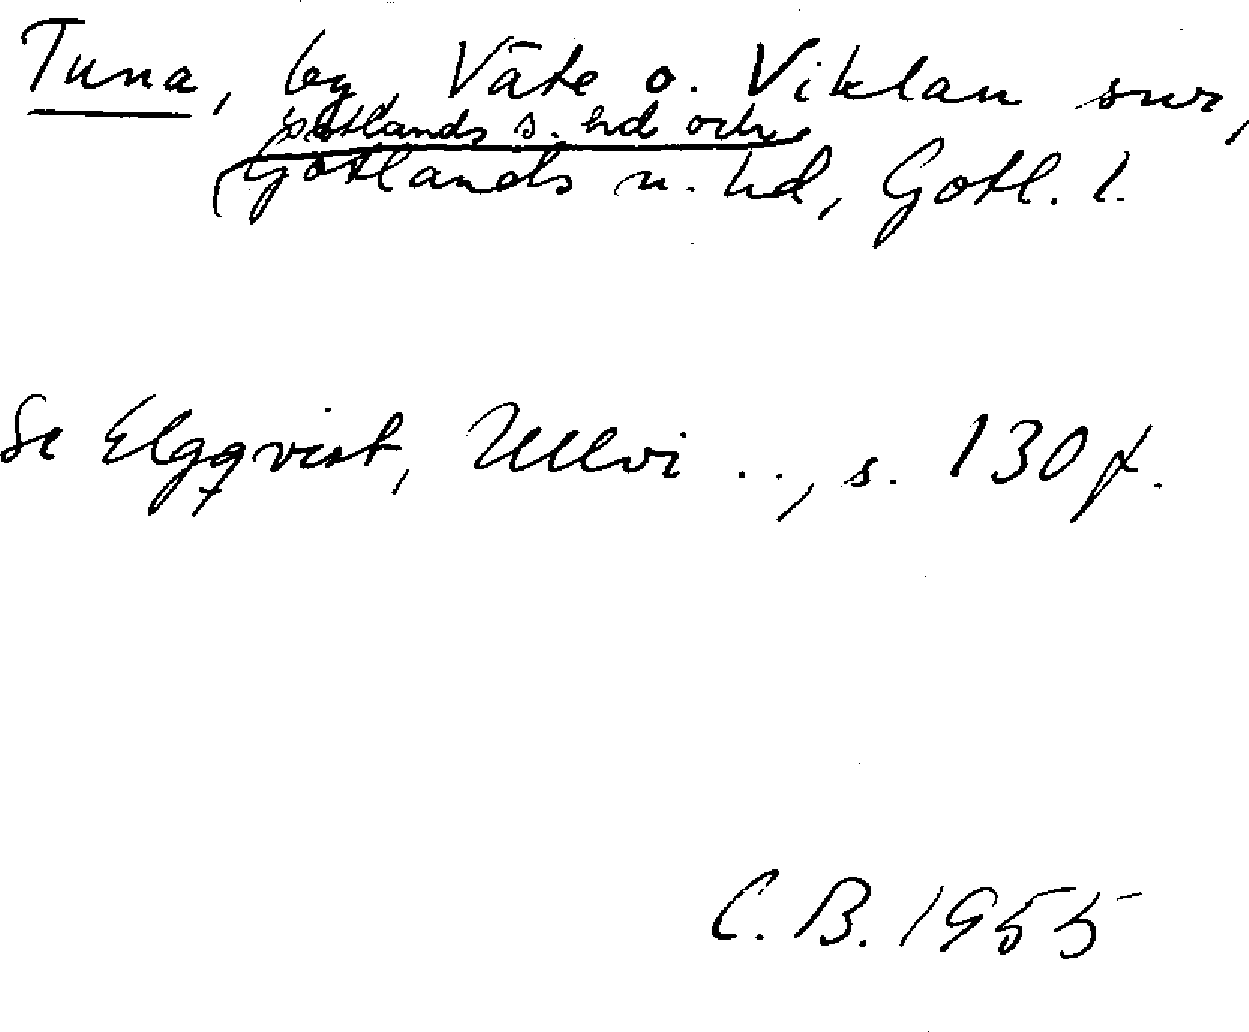 Tuna, by, Väte o. Viklau snr,
Gotlands s. hd och
Gotlands n. hd, Gotl. l.
Se Elgqvist, Ullvi . ., s. 130 f.
C. B. 1955